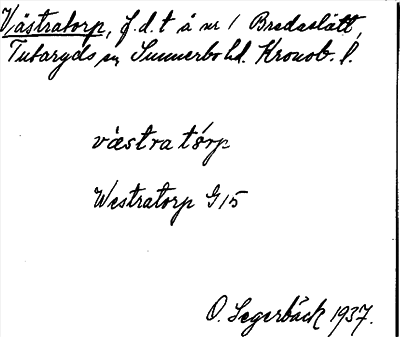 Västratorp, f.d.t å nr 1 Bredaslätt,
Tutaryds sn Sunnerbo hd. Kronob. l.
väs̀tratór̀p
Westratorp G15
O. Segerbäck 1937.